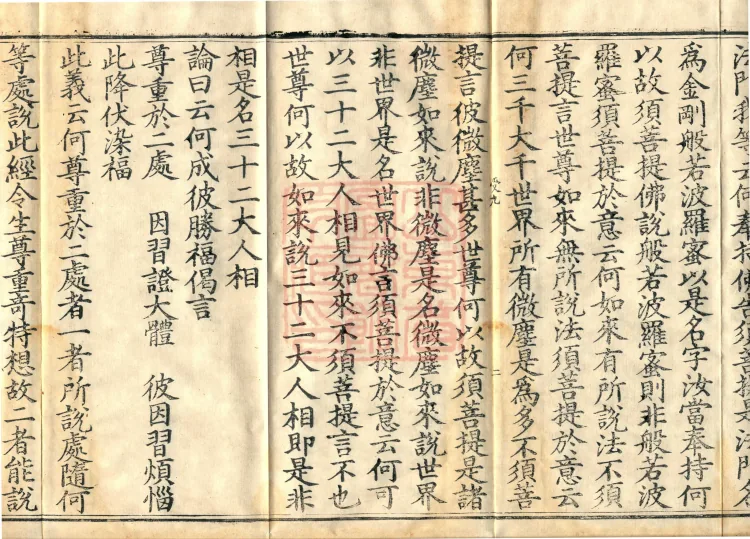 法門我等云何奉持佛告須菩提是法門名
爲金剛般若波羅蜜以是名字汝當奉持何
以故須菩提佛說般若波羅蜜則非般若波
羅蜜須菩提於意云何如來有所說法不須
菩提言世尊如來無所說法須菩提於意云
何三千大千世界所有微塵是爲多不須菩
二
提言彼微塵甚多世尊何以故須菩提是諸
微塵如來說非微塵是名微塵如來說世界
非世界是名世界佛言須菩提於意云何可
以三十二大人相見如來不須菩提言不也
世尊何以故如來說三十二大人相即是非
相是名三十二大人相
論曰云何成彼勝福偈言
尊重於二處　因習證大體　彼因習煩惱
此降伏染福
此義云何尊重於二處者一者所說處隨何
等處說此經令生尊重奇特想故二者能說